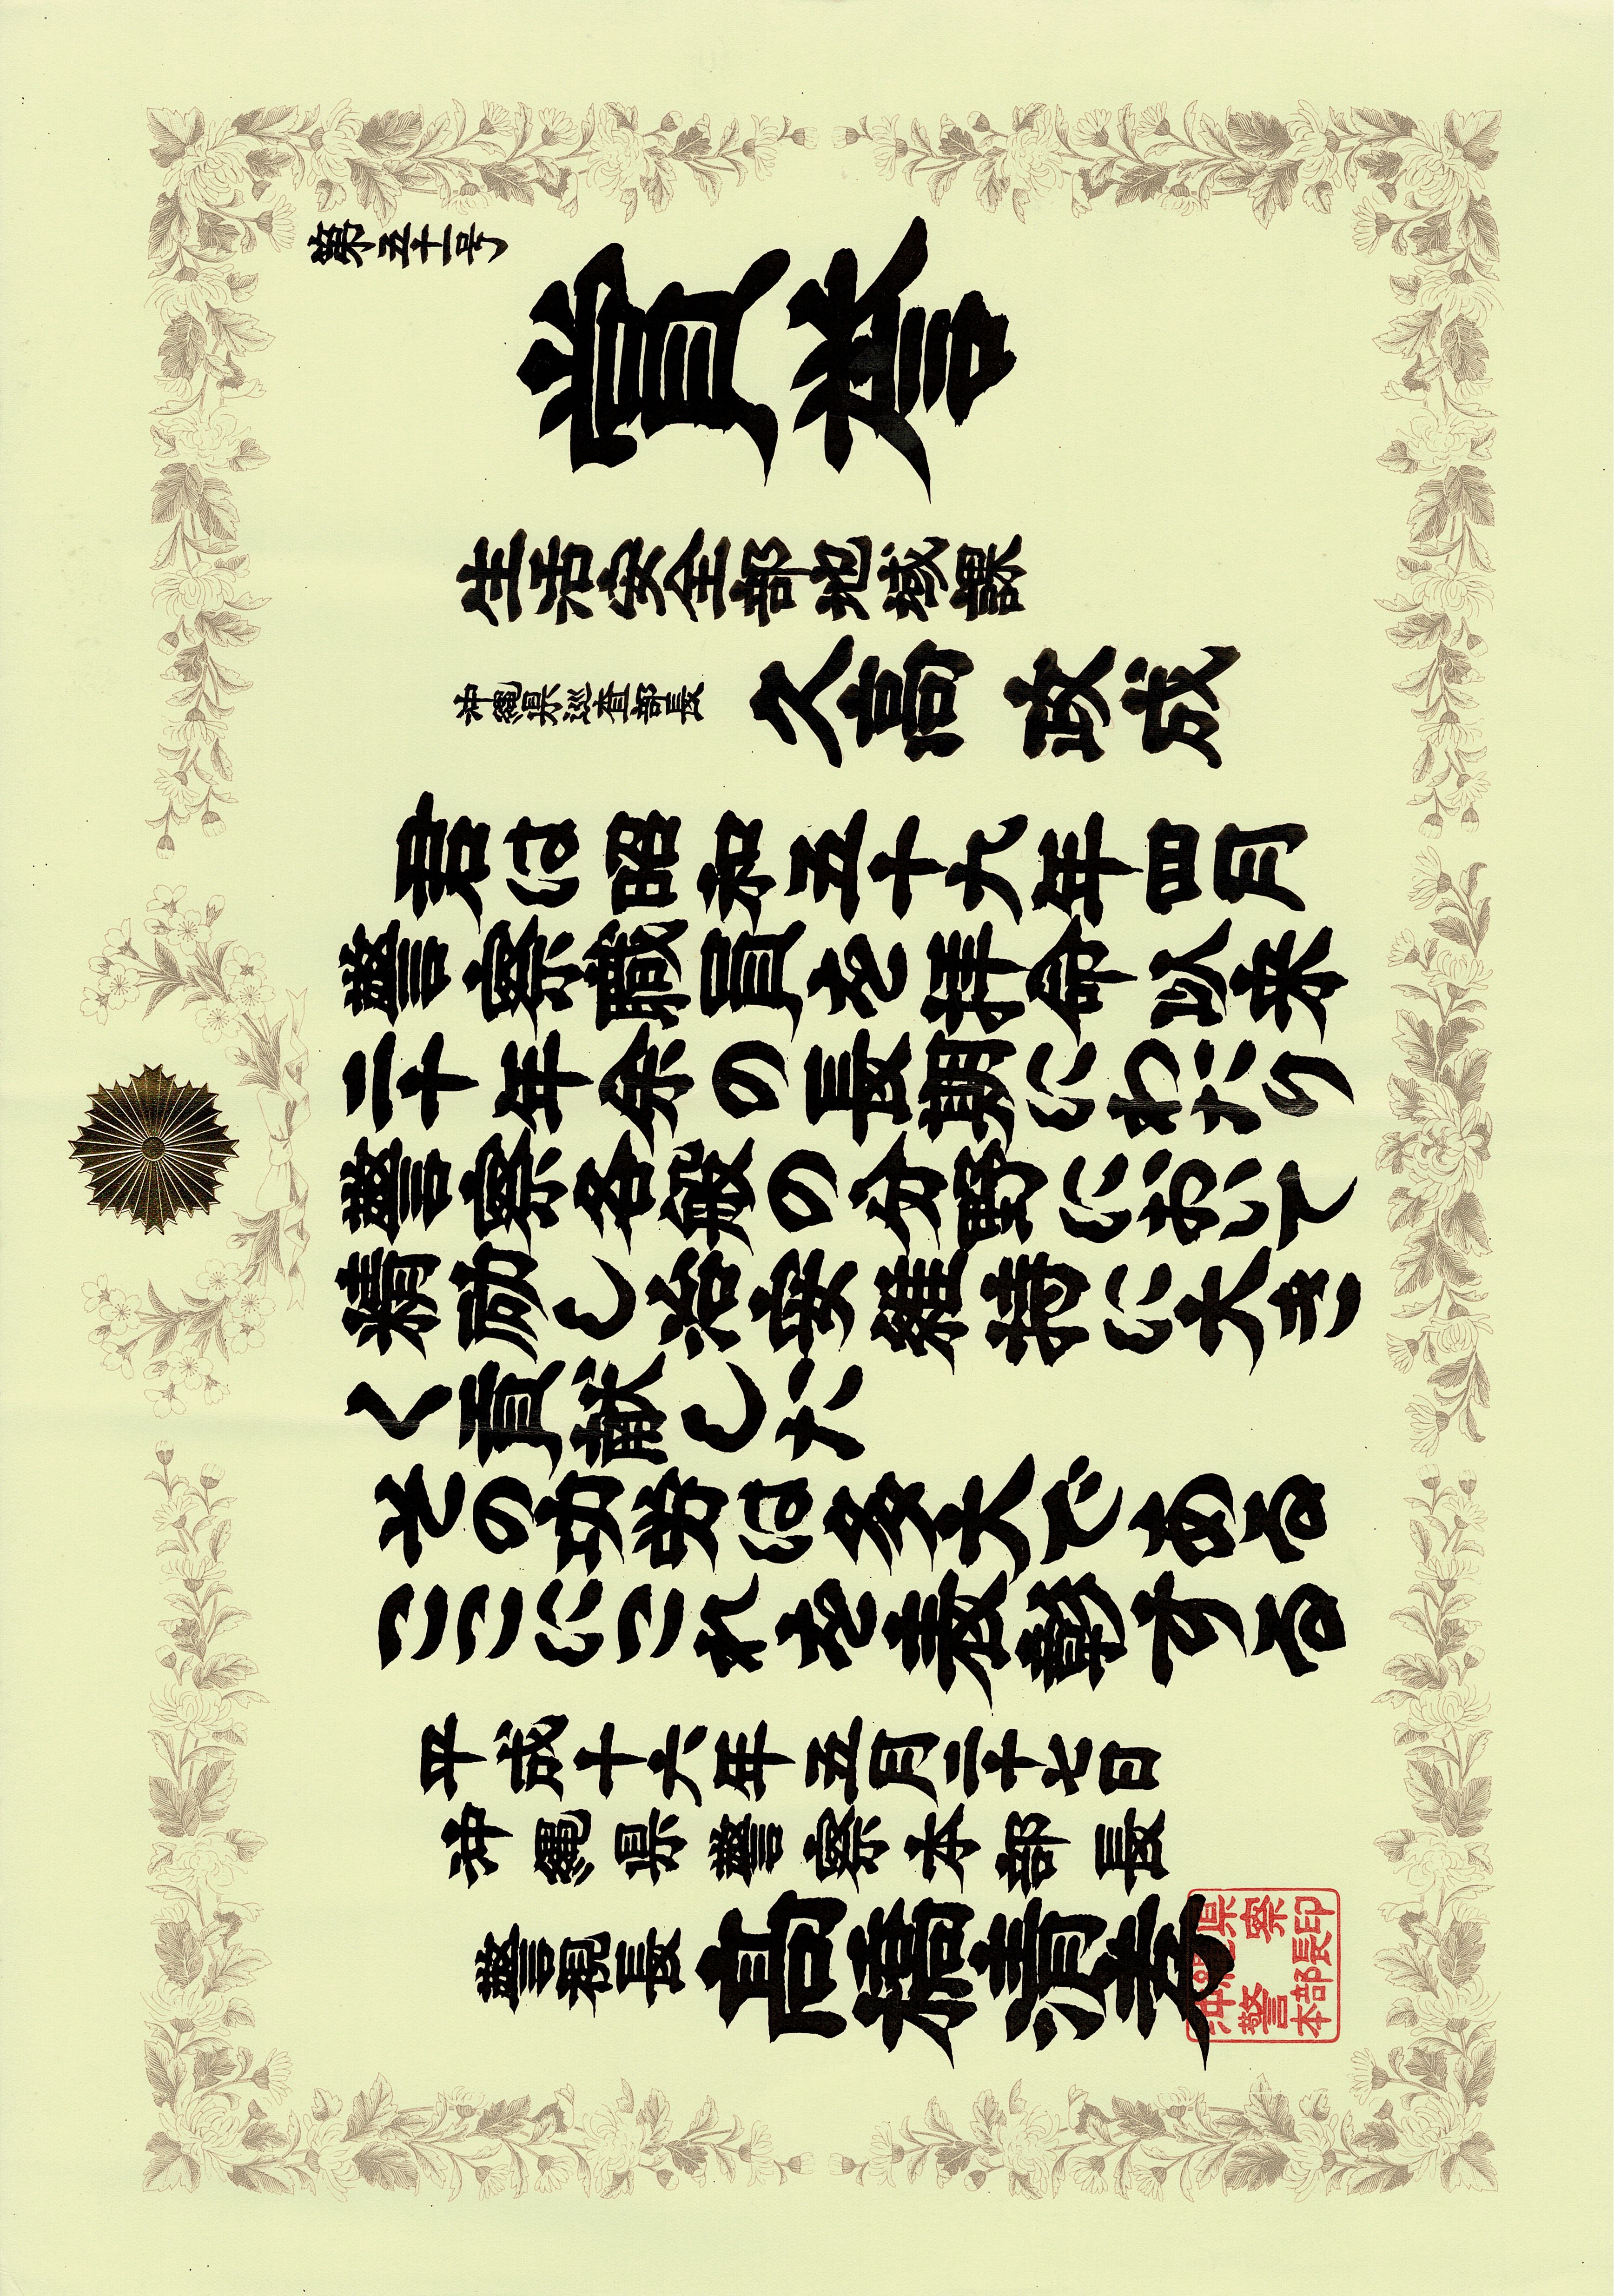 第五十一号
賞誉
生活安全部地域課
沖縄県巡査部長 久高 政成
君は昭和五十九年四月
警察職員を拝命以来
二十年余の長期にわたり
警察各般の分野において
精励し治安維持に大き
く貢献した
その功労は多大である
ここにこれを表彰する
平成十六年五月二十七日
沖縄県警察本部長
警視長 髙橋清孝
沖縄県
警察
本部長印